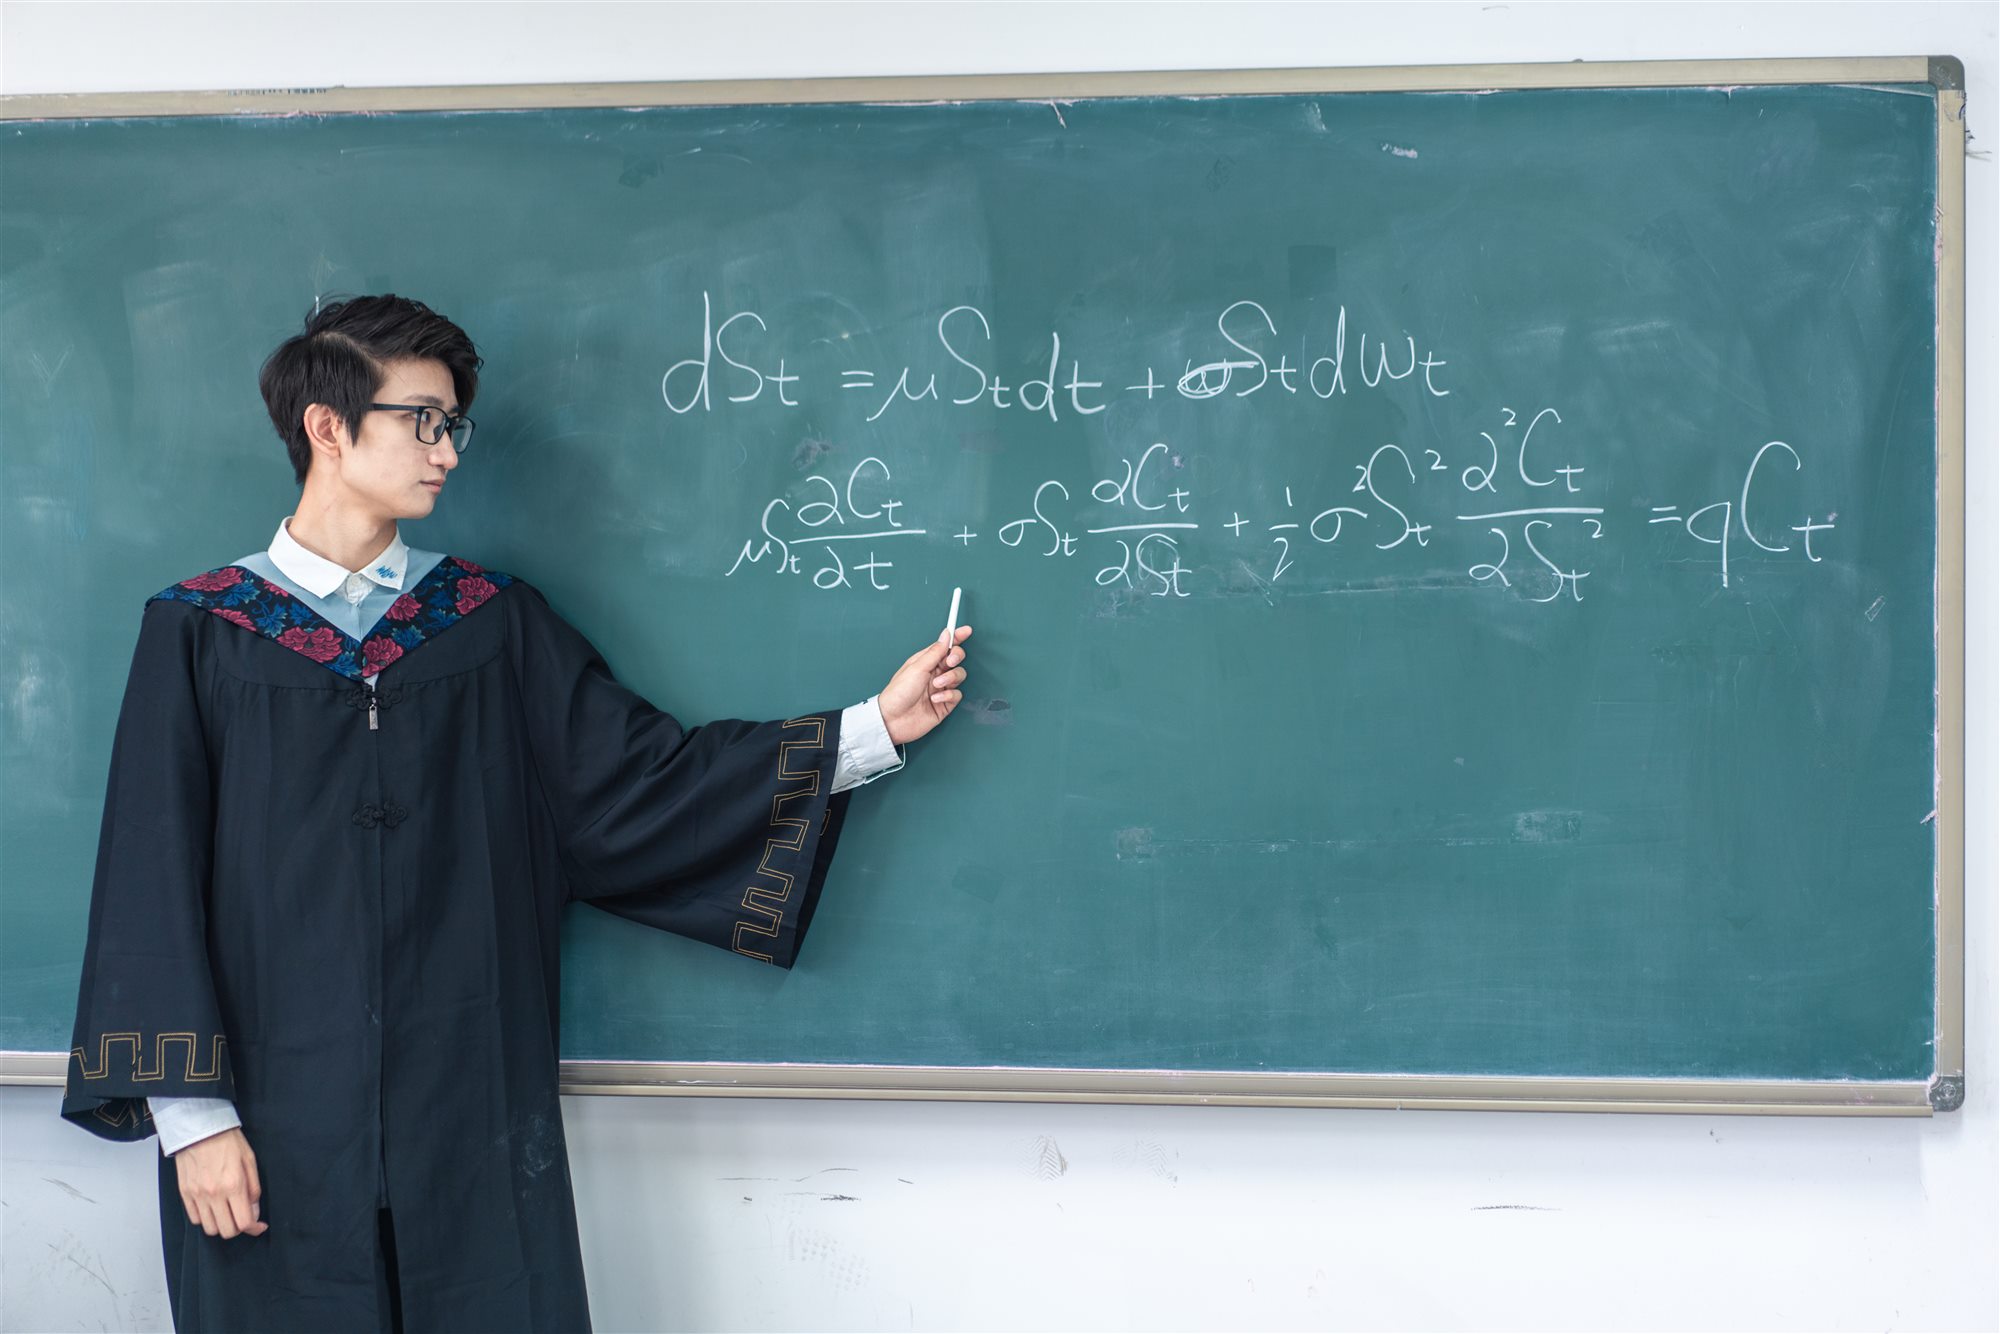 dSₜ = μSₜdt + σSₜdWₜ
μSₜ ∂Cₜ/∂t + σSₜ ∂Cₜ/∂Sₜ + 1/2 σ²Sₜ² ∂²Cₜ/∂Sₜ² = qCₜ